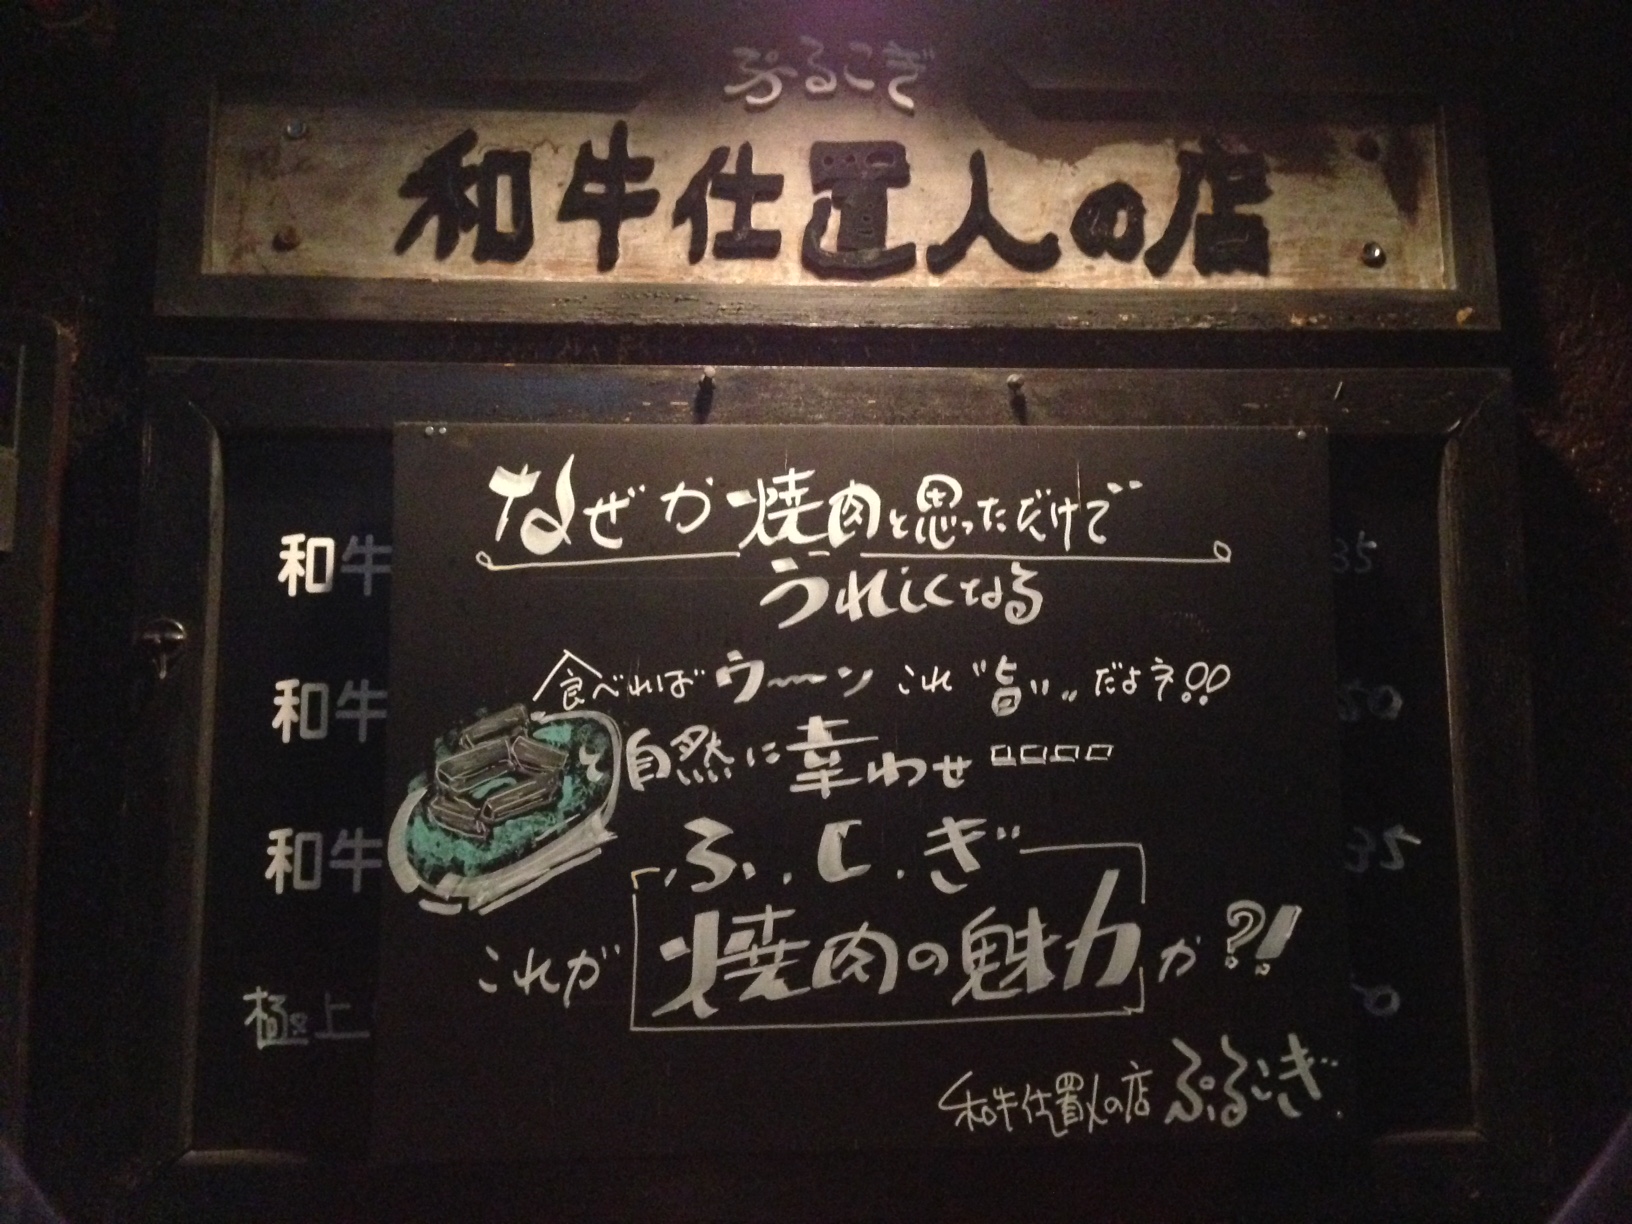 ぷるこぎ
和牛仕置人の店
なぜか焼肉と思っただけで
うれしくなる
食べればウ〜ンこれ“旨い„だよネ!!
と自然に幸わせ
ふ・し・ぎ
これが焼肉の魅力か?!
和牛仕置人の店 ぷるこぎ
和牛 35
和牛 50
和牛 35
極上 0